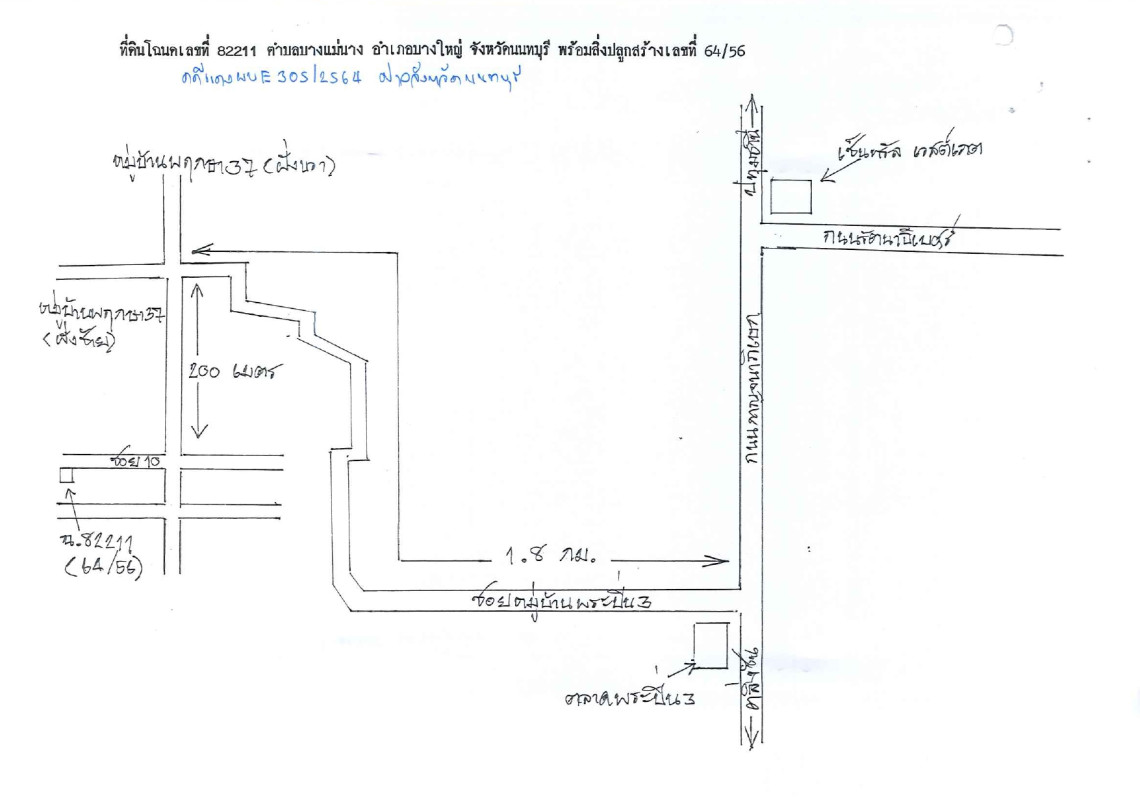 ที่ดินโฉนดเลขที่ 82211 ตำบลบางแม่นาง อำเภอบางใหญ่ จังหวัดนนทบุรี พร้อมสิ่งปลูกสร้างเลขที่ 64/56
คดีแดง ผบE 305/2564 ศาลจังหวัดนนทบุรี
หมู่บ้านพฤกษา37 (ฝั่งขวา)
ปทุมธานี
เซ็นทรัล เวสต์เกต
ถนนรัตนาธิเบศร์
หมู่บ้านพฤกษา37
(ฝั่งซ้าย)
200 เมตร
ถนนกาญจนาภิเษก
ซอย 10
ฉ.82211
(64/56)
1.8 กม.
ซอยหมู่บ้านพระปิ่น3
ตลิ่งชัน
ตลาดพระปิ่น3